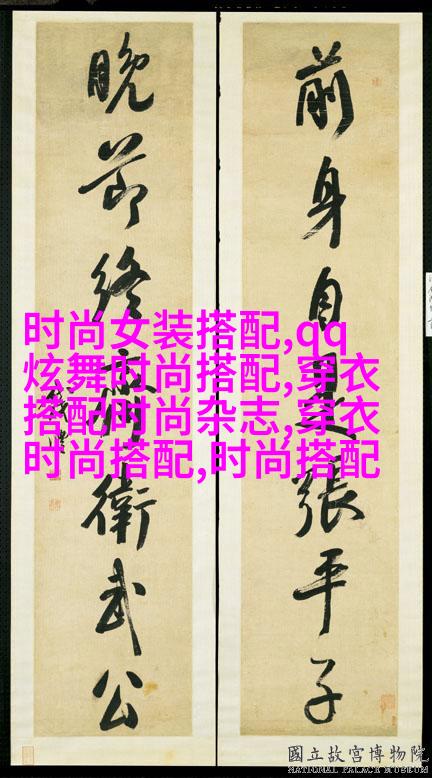 前身自是張平子
晚節終衛武公
时尚女装搭配,qq
炫舞时尚搭配,穿衣
搭配时尚杂志,穿衣
时尚搭配,时尚搭配
國立故宮博物院
NATIONAL PALACE MUSEUM